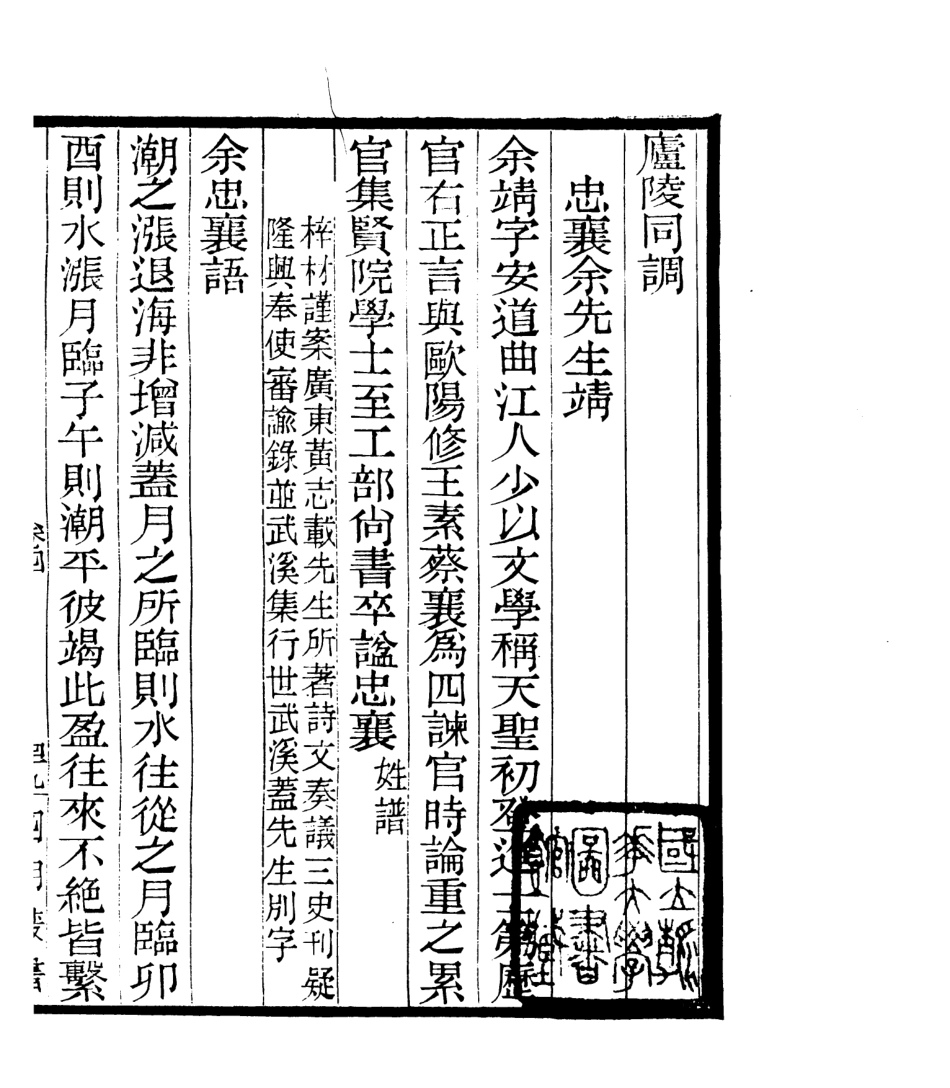 廬陵同調
忠襄余先生靖
余靖字安道曲江人少以文學稱天聖初登進士第歷
官右正言與歐陽修王素蔡襄爲四諫官時論重之累
官集賢院學士至工部尙書卒諡忠襄姓譜
梓材謹案廣東黃志載先生所著詩文奏議三史刊疑
隆興奉使審諭錄並武溪集行世武溪蓋先生別字
余忠襄語
潮之漲退海非增減蓋月之所臨則水往從之月臨卯
酉則水漲月臨子午則潮平彼竭此盈往來不絕皆繫
國立
大學
圖書